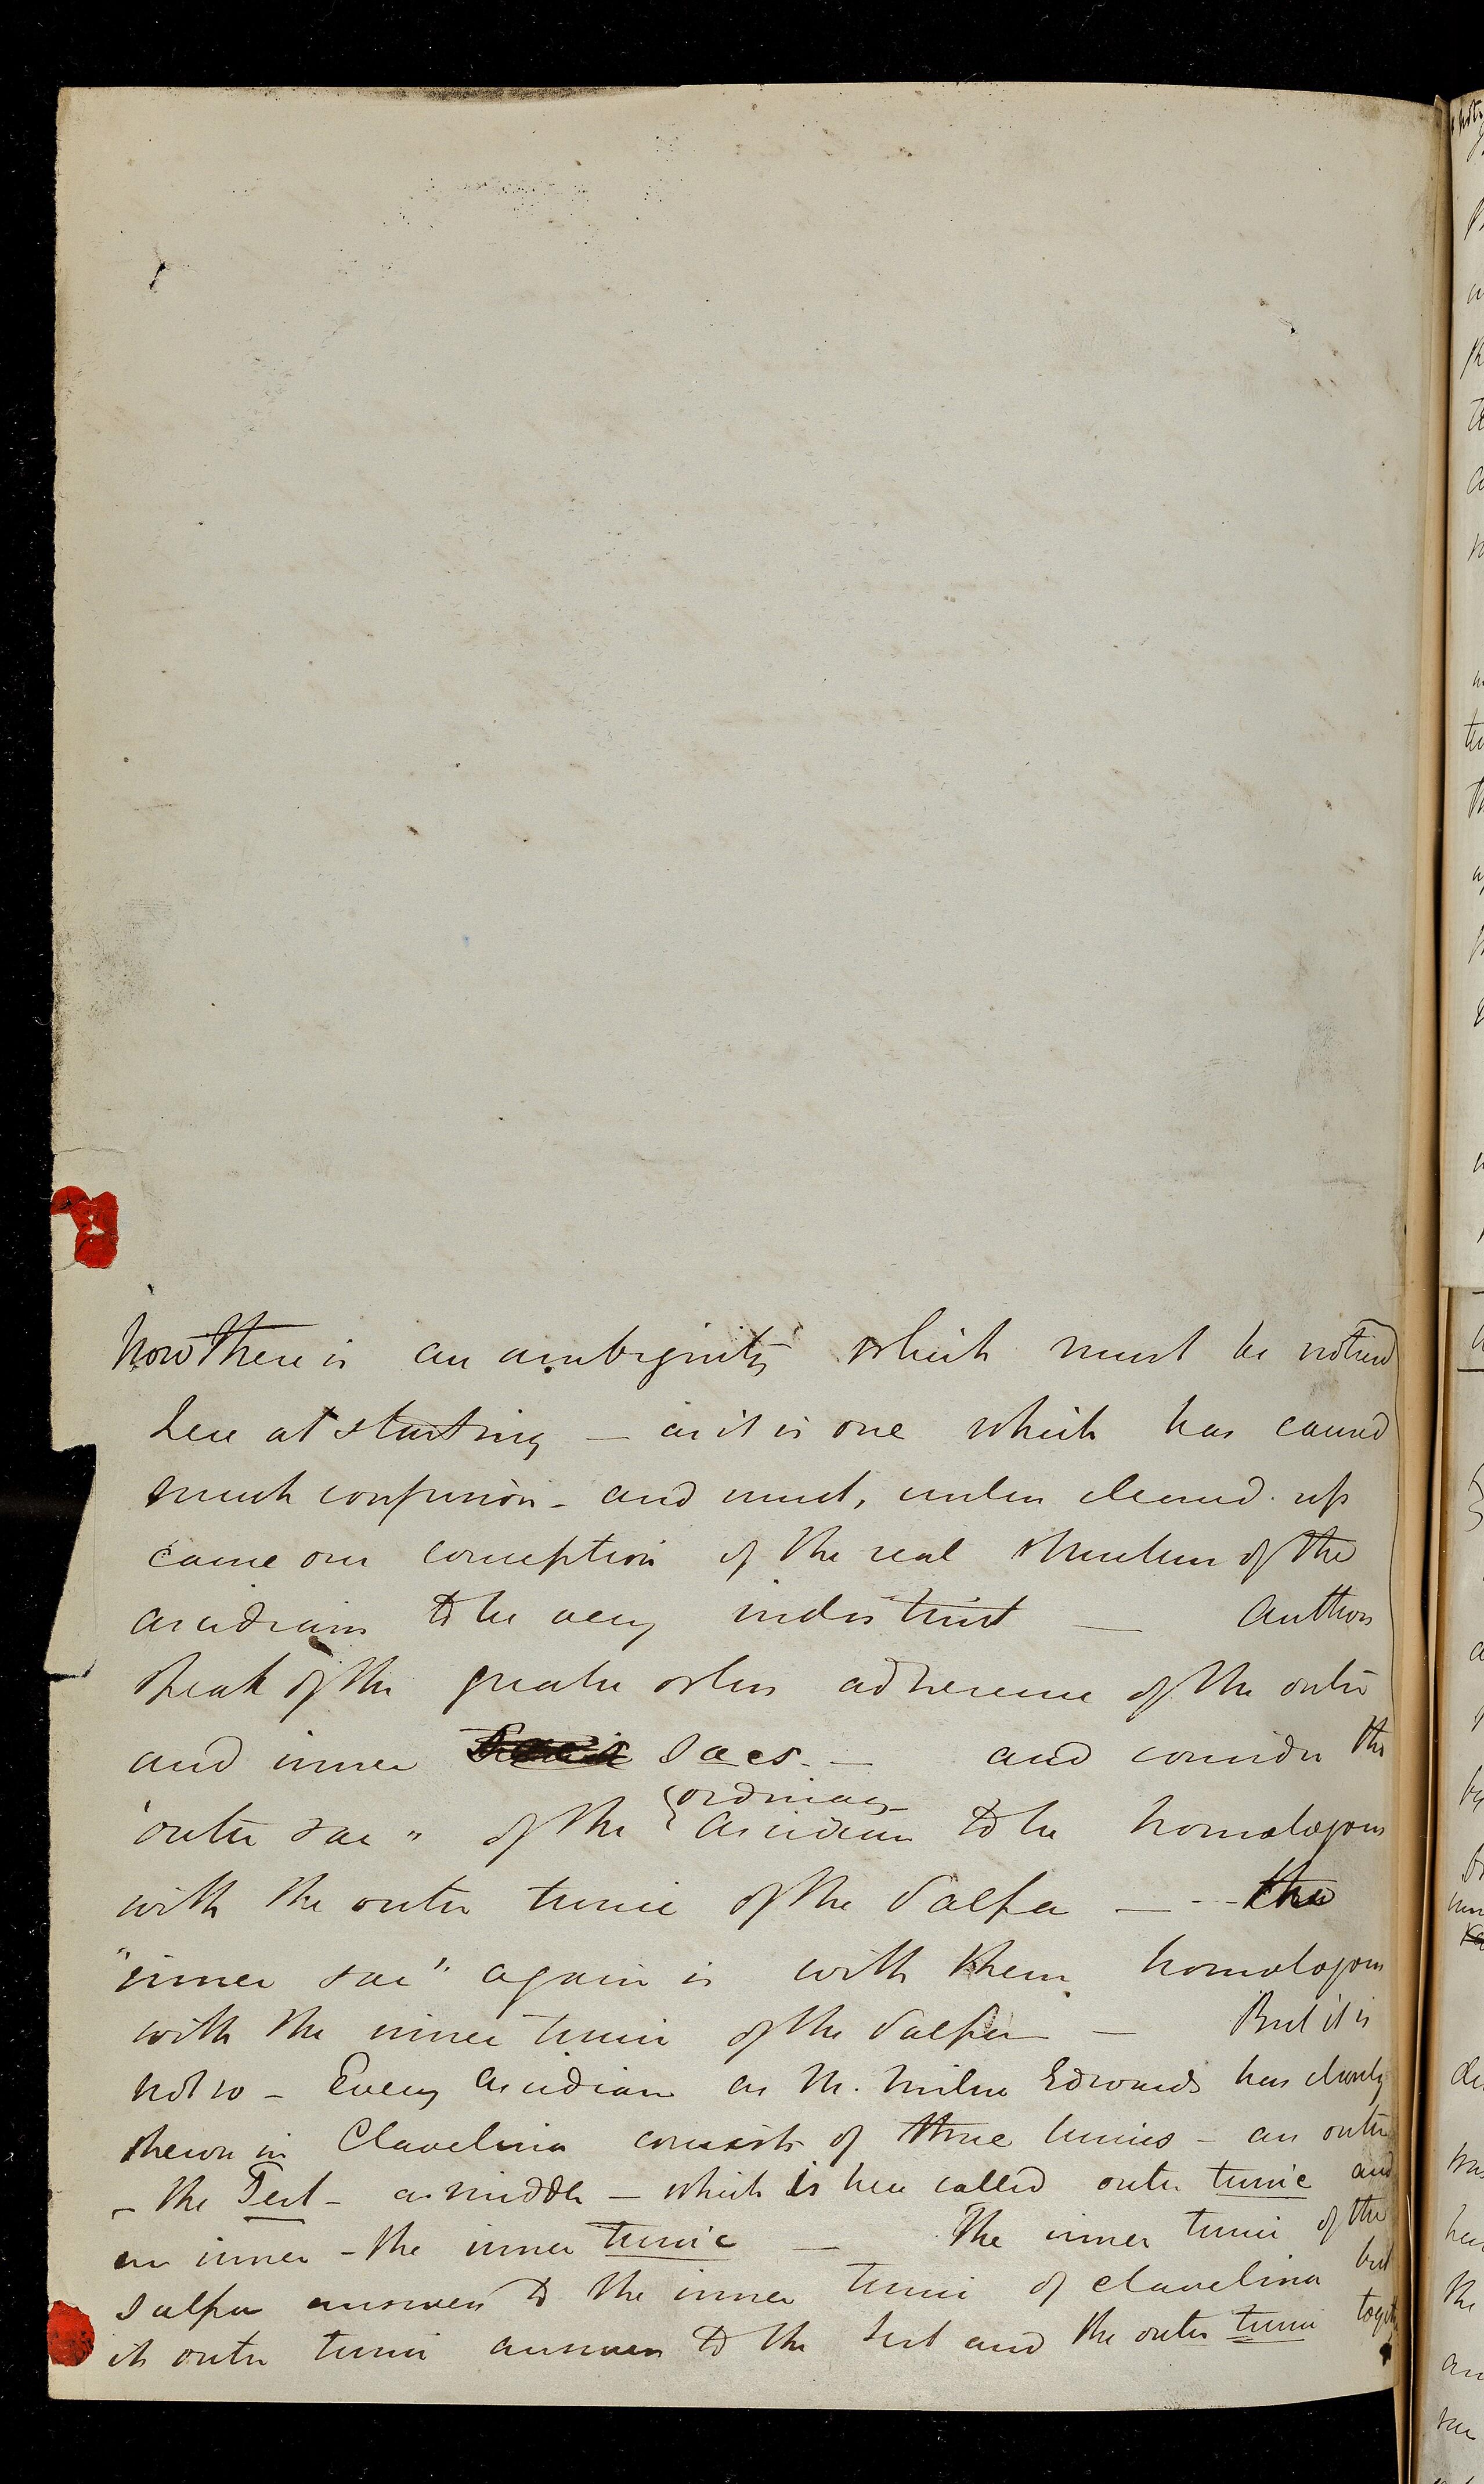 Now There is an ambiguity which must be noticed
here at starting – as it is one which has caused
much confusion – and must, unless cleared up
cause our conception of the real structure of the
ascidians to be very indistinct — Authors
speak of the greater or less adherence of the outer
and inner sacs. — and consider the
"outer sac" of the ordinary Ascidian to be homologous
with the outer tunic of the Salpa — the
"inner sac" again is with them homologous
with the inner tunic of the Salpa — But it is
not so – Every ascidian as M. Milne Edwards has clearly
shewn in Clavelina consists of three tunics – an outer
– the Test – a middle – which is here called outer tunic and
an inner – the inner tunic — The inner tunic of the
Salpa answers to the inner tunic of clavelina but
its outer tunic answers to the test and the outer tunic together